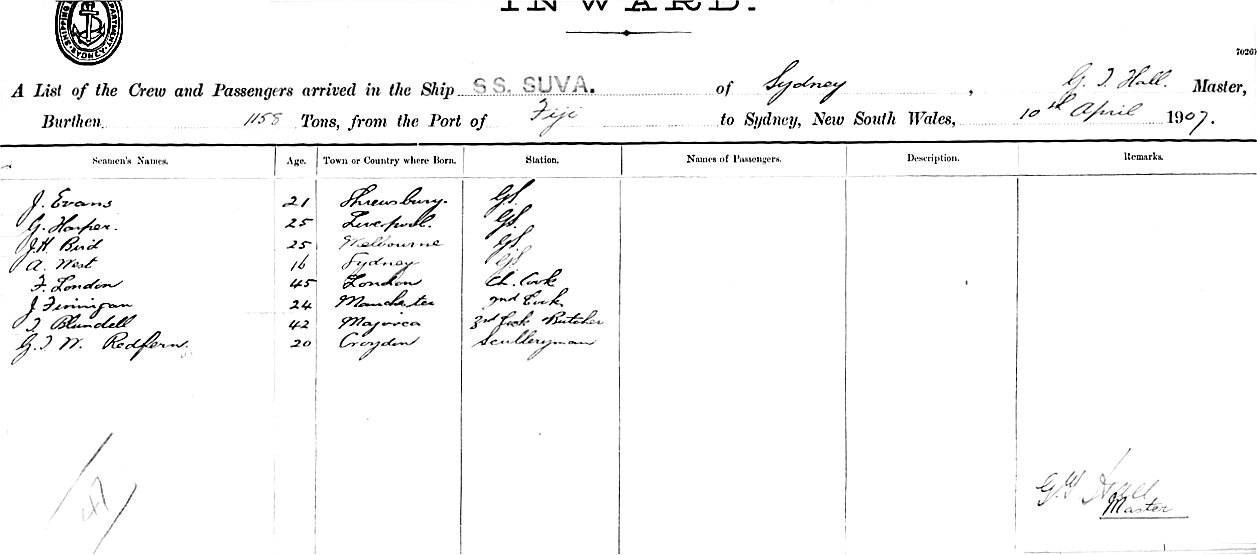 INWARD.
SHIPPING SYDNEY
A List of the Crew and Passengers arrived in the Ship SS. SUVA. of Sydney, G. T. Hall. Master,
Burthen 1158 Tons, from the Port of Fiji to Sydney, New South Wales, 10th April 1907.
Seamen's Names. Age. Town or Country where Born. Station. Names of Passengers. Description. Remarks.
J. Evans 21 Shrewsbury. GS.
G. Harper. 25 Liverpool. GS.
J.H. Bird 25 Melbourne GS.
A. West 16 Sydney GS
F. London 45 London Ch. Cook
J Finnigan 24 Manchester 2nd Cook
T Blundell 42 Majorca 3rd Cook Butcher
G. T. W. Redfern. 20 Croydon Sculleryman
47
Hall
Master